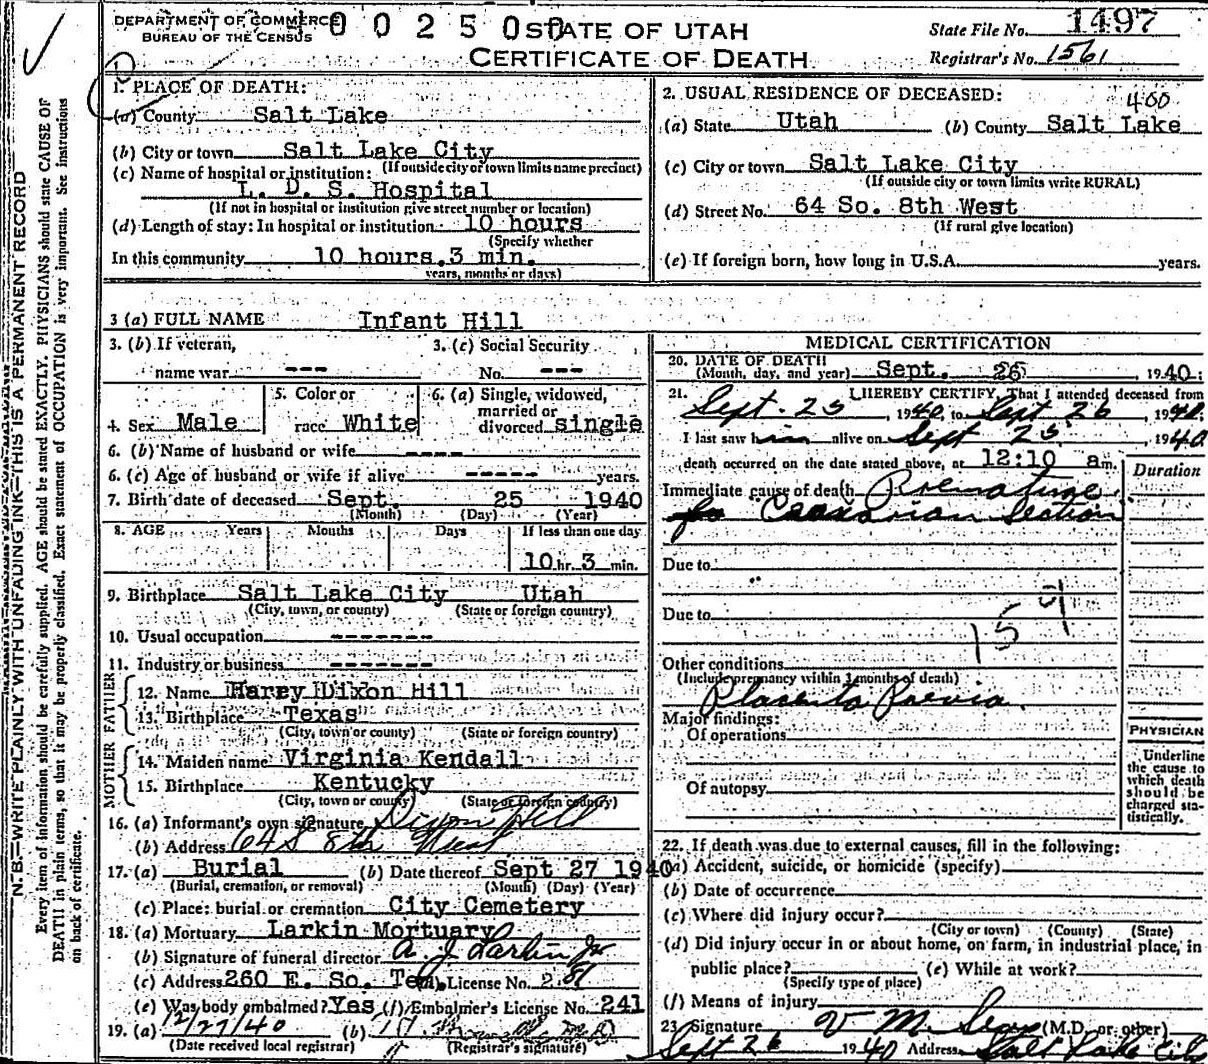 DEPARTMENT OF COMMERCE
BUREAU OF THE CENSUS
0 0 2 5 0
STATE OF UTAH
CERTIFICATE OF DEATH
State File No. 1497
Registrar's No. 1561
1. PLACE OF DEATH:
(a) County Salt Lake
(b) City or town Salt Lake City
(If outside city or town limits name precinct)
(c) Name of hospital or institution:
L. D. S. Hospital
(If not in hospital or institution give street number or location)
(d) Length of stay: In hospital or institution 10 hours
(Specify whether
In this community 10 hours 3 min.
years, months or days)
2. USUAL RESIDENCE OF DECEASED:
400
(a) State Utah (b) County Salt Lake
(c) City or town Salt Lake City
(If outside city or town limits write RURAL)
(d) Street No. 64 So. 8th West
(If rural give location)
(e) If foreign born, how long in U.S.A. years.
3 (a) FULL NAME Infant Hill
3. (b) If veteran,
name war ---
3. (c) Social Security
No. ---
4. Sex Male
5. Color or
race White
6. (a) Single, widowed,
married or
divorced single
6. (b) Name of husband or wife ----
6. (c) Age of husband or wife if alive ----- years.
7. Birth date of deceased Sept. 25 1940
(Month) (Day) (Year)
8. AGE Years Months Days If less than one day
10 hr. 3 min.
9. Birthplace Salt Lake City Utah
(City, town, or county) (State or foreign country)
10. Usual occupation -------
11. Industry or business -------
FATHER
12. Name Harry Dixon Hill
13. Birthplace Texas
(City, town or county) (State or foreign country)
MOTHER
14. Maiden name Virginia Kendall
15. Birthplace Kentucky
(City, town or county) (State or foreign country)
16. (a) Informant's own signature Dixon Hill
(b) Address 64 S 8th West
17. (a) Burial (b) Date thereof Sept 27 1940
(Burial, cremation, or removal) (Month) (Day) (Year)
(c) Place: burial or cremation City Cemetery
18. (a) Mortuary Larkin Mortuary
(b) Signature of funeral director A. J. Larkin Jr
(c) Address 260 E. So. Tem. License No. 281
(e) Was body embalmed? Yes (f) Embalmer's License No. 241
19. (a) 9/27/40 (b)
(Date received local registrar) (Registrar's signature)
MEDICAL CERTIFICATION
20. DATE OF DEATH
(Month, day, and year) Sept. 26 , 1940:
21. I HEREBY CERTIFY, That I attended deceased from
Sept. 25 , 1940, to Sept 26 , 1940.
I last saw him alive on Sept 25 , 1940
death occurred on the date stated above, at 12:10 am.
Duration
Immediate cause of death Premature
Section
Due to
Due to
159
Other conditions
(Include pregnancy within 3 months of death)
Placenta Praevia.
Major findings:
Of operations
Of autopsy
PHYSICIAN
Underline
the cause to
which death
should be
charged sta-
tistically.
22. If death was due to external causes, fill in the following:
(a) Accident, suicide, or homicide (specify)
(b) Date of occurrence
(c) Where did injury occur?
(City or town) (County) (State)
(d) Did injury occur in or about home, on farm, in industrial place, in
public place? (e) While at work?
(Specify type of place)
(f) Means of injury
23. Signature V M Sears (M.D. or other)
Sept 26 1940 Address Salt Lake City
N. B.—WRITE PLAINLY WITH UNFADING INK—THIS IS A PERMANENT RECORD
Every item of information should be carefully supplied. AGE should be stated EXACTLY. PHYSICIANS should state CAUSE OF
DEATH in plain terms, so that it may be properly classified. Exact statement of OCCUPATION is very important. See instructions
on back of certificate.